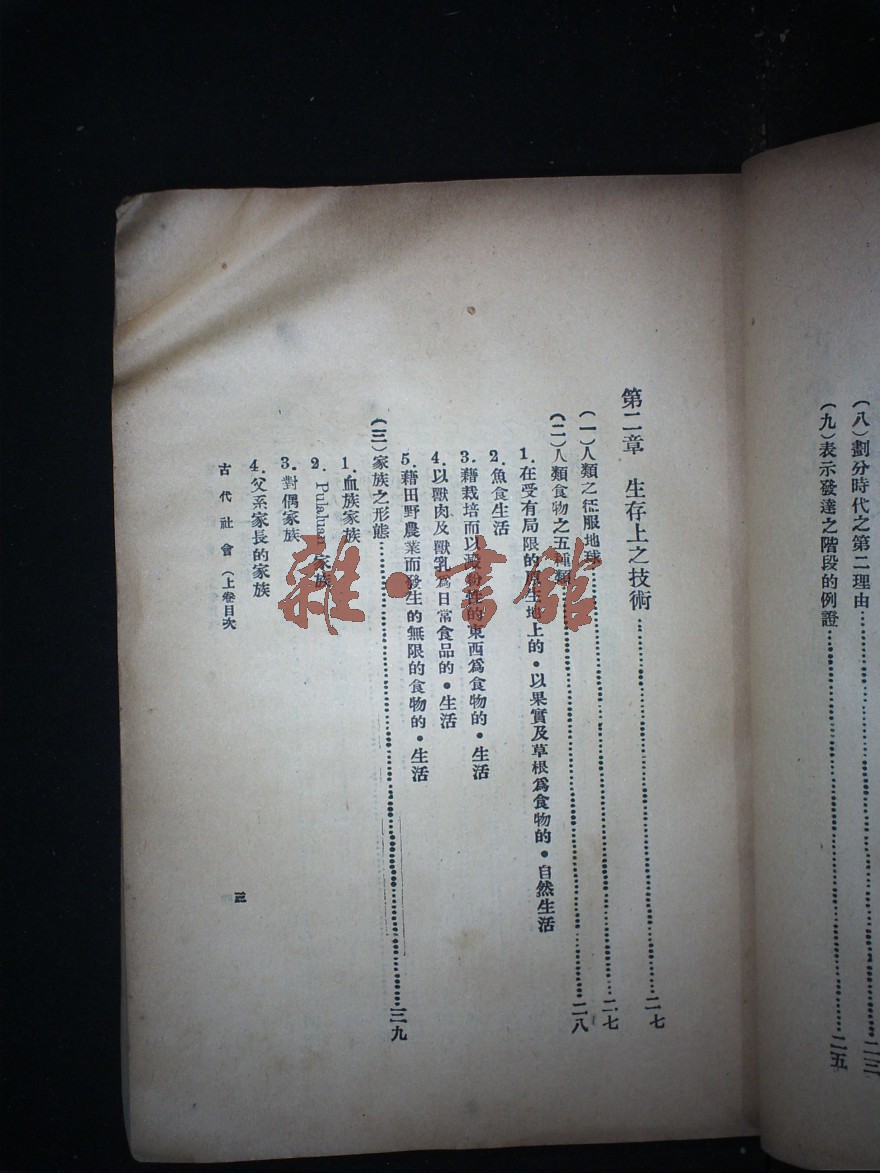 （八）劃分時代之第二理由……二三
（九）表示發達之階段的例證……二五
第二章　生存上之技術……二七
（一）人類之征服地球……二七
（二）人類食物之五種類……二八
1. 在受有局限的原生地上的・以果實及草根爲食物的・自然生活
2. 魚食生活
3. 藉栽培而以澱粉性的東西爲食物的・生活
4. 以獸肉及獸乳爲日常食品的・生活
5. 藉田野農業而發生的無限的食物的・生活
（三）家族之形態……三九
1. 血族家族
2. Pulaluan 家族
3. 對偶家族
4. 父系家長的家族
古代社會（上卷目次
三
雜・書館